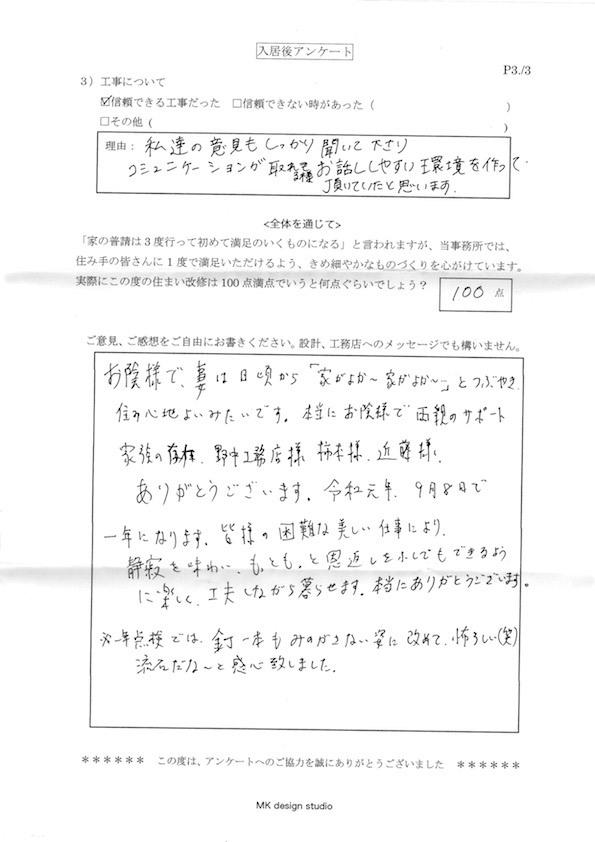 入居後アンケート
P3./3
3）工事について
☑信頼できる工事だった　□信頼できない時があった（　　　　　　　　　　）
□その他（　　　　　　　　　　　　　　　　　　　　　　　　　　）
理由： 私達の意見もしっかり聞いて下さり
コミュニケーションが取れて お話ししやすい環境を作って
頂いていたと思います。
<全体を通じて>
「家の普請は3度行って初めて満足のいくものになる」と言われますが、当事務所では、
住み手の皆さんに1度で満足いただけるよう、きめ細やかなものづくりを心がけています。
実際にこの度の住まい改修は100点満点でいうと何点ぐらいでしょう？　100 点
ご意見、ご感想をご自由にお書きください。設計、工務店へのメッセージでも構いません。
お陰様で、妻は日頃から「家がよか～家がよか～」とつぶやき、
住み心地よいみたいです。本当にお陰様で両親のサポート
家族の存在、野中工務店様 柿本様、近藤様、
ありがとうございます。令和元年、9月8日で
一年になります。皆様の困難な美しい仕事により、
静寂を味わい、もっともっと恩返しを少しでもできるよう
に楽しく、工夫しながら暮らせます。本当にありがとうございます。
※一年点検では、釘一本もみのがさない姿に改めて、怖ろしい(笑)
流石だな～と感心致しました。
＊＊＊＊＊＊　この度は、アンケートへのご協力を誠にありがとうございました　＊＊＊＊＊＊
MK design studio